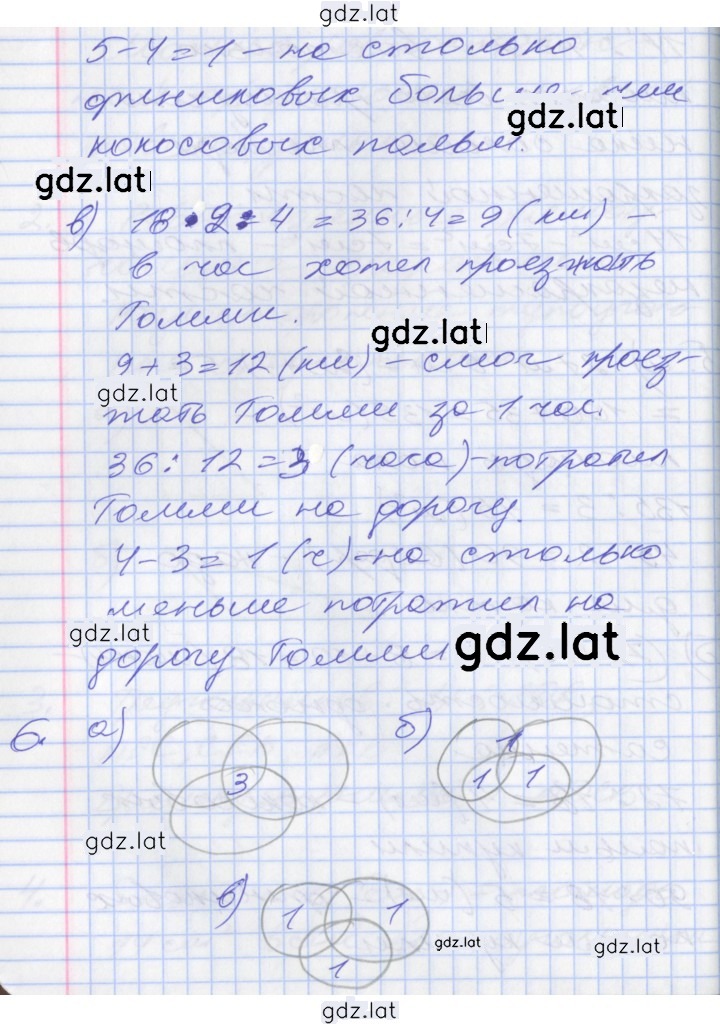 gdz.lat
5-4=1 - на столько
финиковых больше, чем
gdz.lat
кокосовых пальм.
gdz.lat
в) 18•2:4 = 36:4=9 (км) –
в час хотел проезжать
Томми.
gdz.lat
9+3=12 (км) – смог проез-
gdz.lat
жать Томми за 1 час.
36:12=3 (часа)-потратил
Томми на дорогу.
4-3=1 (ч)-на столько
меньше потратил на
gdz.lat
дорогу Томми
gdz.lat
6. а) б)
1
3 1 1
gdz.lat
в)
1 1
1
gdz.lat
gdz.lat
gdz.lat